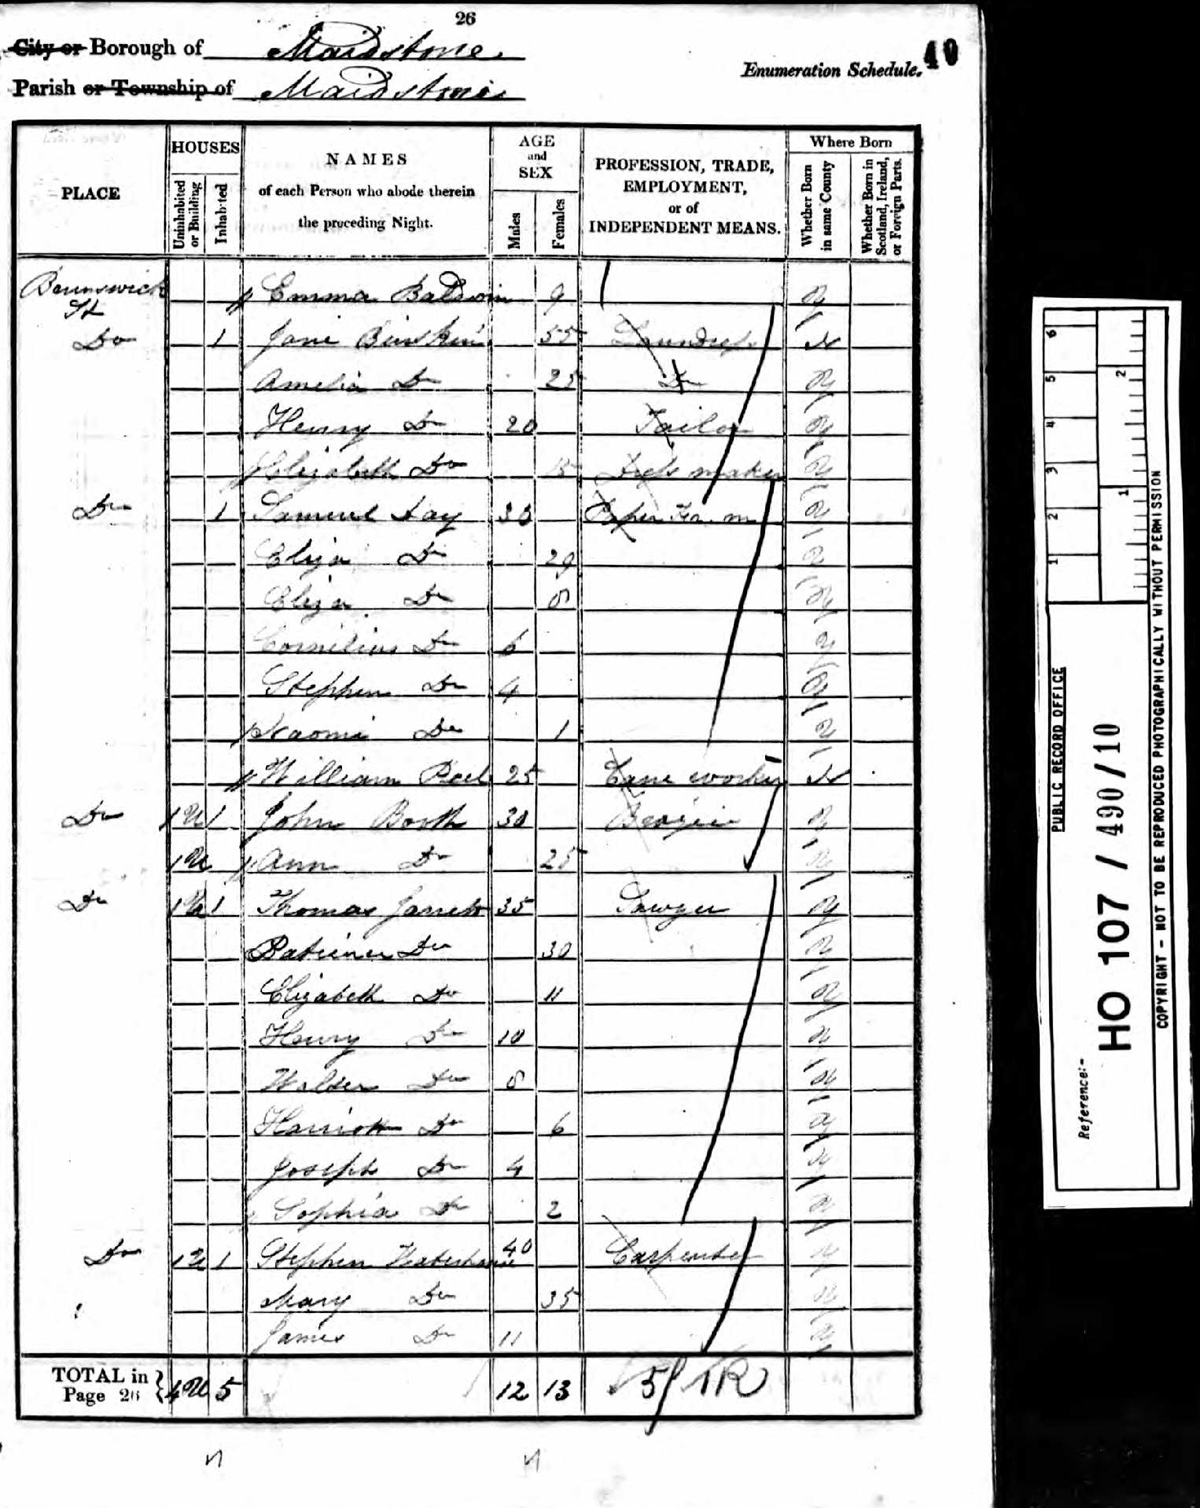 26
City or Borough of Maidstone
Enumeration Schedule. 40
Parish or Township of Maidstone
PLACE
HOUSES
Uninhabited or Building
Inhabited
NAMES
of each Person who abode therein
the preceding Night.
AGE
and
SEX
Males
Females
PROFESSION, TRADE,
EMPLOYMENT,
or of
INDEPENDENT MEANS.
Where Born
Whether Born in same County
Whether Born in Scotland, Ireland, or Foreign Parts.
Brunswick St Emma Baldwin 9 y
Do 1 Jane 55 Laundress N
Amelia Do 25 Do y
Henry Do 20 Tailor y
Elizabeth Do 15 Dress maker y
Do 1 Samuel 30 Paper m y
Eliza Do 29 y
Eliza Do 8 y
Cornelius Do 6 y
Stephen Do 4 y
Naomi Do 1 y
William 25 Cane worker N
Do 1 U 1 John Booth 30 y
1 U Ann Do 25 y
Do 1 U 1 Thomas Jarrett 35 Sawyer y
Patience Do 30 y
Elizabeth Do 11 y
Henry Do 10 y
Walter Do 8 y
Harriott Do 6 y
Joseph Do 4 y
Sophia Do 2 y
Do 1 U 1 Stephen Waterhouse 40 Carpenter y
Mary Do 35 y
James Do 11 y
TOTAL in
Page 26 4 U 5 12 13 5
6 5 4 3 2 1
2 1
PUBLIC RECORD OFFICE
Reference:-
HO 107 / 490/10
COPYRIGHT - NOT TO BE REPRODUCED PHOTOGRAPHICALLY WITHOUT PERMISSION